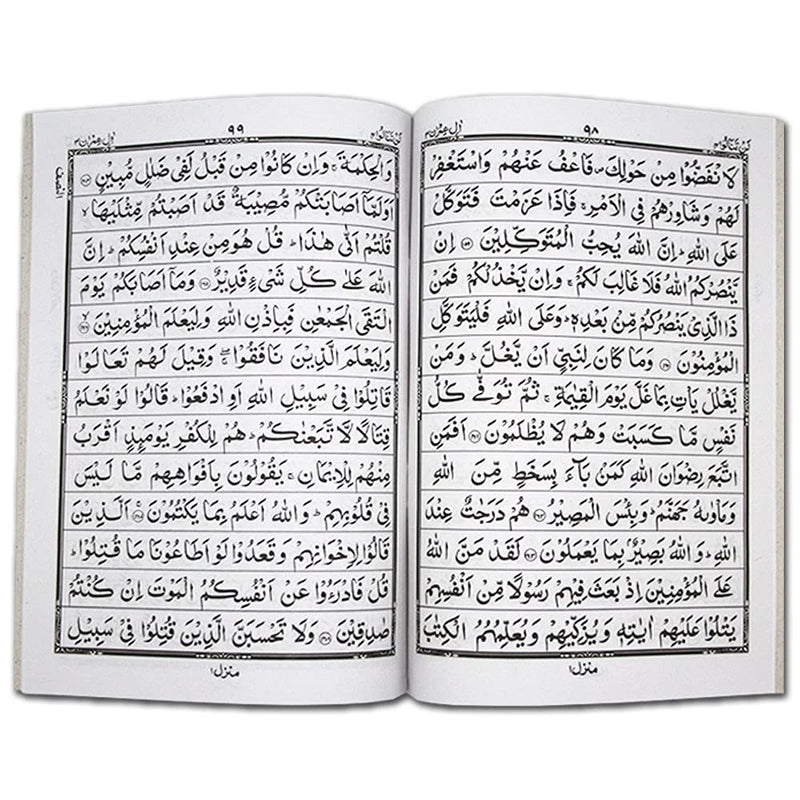 لن تنالوا ٤
٩٨
اٰل عمرٰن ٣
لَا نْفَضُّوْا مِنْ حَوْلِكَ فَاعْفُ عَنْهُمْ وَاسْتَغْفِرْ
لَهُمْ وَشَاوِرْهُمْ فِي الْاَمْرِ ۚ فَاِذَا عَزَمْتَ فَتَوَكَّلْ
عَلَى اللّٰهِ ؕ اِنَّ اللّٰهَ يُحِبُّ الْمُتَوَكِّلِيْنَ ﴿۱۵۹﴾ اِنْ
يَّنْصُرْكُمُ اللّٰهُ فَلَا غَالِبَ لَكُمْ ۚ وَاِنْ يَّخْذُلْكُمْ فَمَنْ
ذَا الَّذِيْ يَنْصُرُكُمْ مِّنْ بَعْدِهٖ ؕ وَعَلَى اللّٰهِ فَلْيَتَوَكَّلِ
الْمُؤْمِنُوْنَ ﴿۱۶۰﴾ وَمَا كَانَ لِنَبِيٍّ اَنْ يَّغُلَّ ؕ وَمَنْ
يَّغْلُلْ يَاْتِ بِمَا غَلَّ يَوْمَ الْقِيٰمَةِ ۚ ثُمَّ تُوَفّٰى كُلُّ
نَفْسٍ مَّا كَسَبَتْ وَهُمْ لَا يُظْلَمُوْنَ ﴿۱۶۱﴾ اَفَمَنِ
اتَّبَعَ رِضْوَانَ اللّٰهِ كَمَنْ بَآءَ بِسَخَطٍ مِّنَ اللّٰهِ
وَمَاْوٰىهُ جَهَنَّمُ ؕ وَبِئْسَ الْمَصِيْرُ ﴿۱۶۲﴾ هُمْ دَرَجٰتٌ عِنْدَ
اللّٰهِ ؕ وَاللّٰهُ بَصِيْرٌۢ بِمَا يَعْمَلُوْنَ ﴿۱۶۳﴾ لَقَدْ مَنَّ اللّٰهُ
عَلَى الْمُؤْمِنِيْنَ اِذْ بَعَثَ فِيْهِمْ رَسُوْلًا مِّنْ اَنْفُسِهِمْ
يَتْلُوْا عَلَيْهِمْ اٰيٰتِهٖ وَيُزَكِّيْهِمْ وَيُعَلِّمُهُمُ الْكِتٰبَ
منزل ۱
لن تنالوا ٤
٩٩
اٰل عمرٰن ٣
وَالْحِكْمَةَ ۚ وَاِنْ كَانُوْا مِنْ قَبْلُ لَفِيْ ضَلٰلٍ مُّبِيْنٍ ﴿۱۶۴﴾
اَوَلَمَّاۤ اَصَابَتْكُمْ مُّصِيْبَةٌ قَدْ اَصَبْتُمْ مِّثْلَيْهَا ۙ
قُلْتُمْ اَنّٰى هٰذَا ؕ قُلْ هُوَ مِنْ عِنْدِ اَنْفُسِكُمْ ؕ اِنَّ
اللّٰهَ عَلٰى كُلِّ شَيْءٍ قَدِيْرٌ ﴿۱۶۵﴾ وَمَاۤ اَصَابَكُمْ يَوْمَ
الْتَقَى الْجَمْعٰنِ فَبِاِذْنِ اللّٰهِ وَلِيَعْلَمَ الْمُؤْمِنِيْنَ ﴿۱۶۶﴾ ۙ
وَلِيَعْلَمَ الَّذِيْنَ نَافَقُوْا ۖۚ وَقِيْلَ لَهُمْ تَعَالَوْا
قَاتِلُوْا فِيْ سَبِيْلِ اللّٰهِ اَوِ ادْفَعُوْا ؕ قَالُوْا لَوْ نَعْلَمُ
قِتَالًا لَّا تَّبَعْنٰكُمْ ؕ هُمْ لِلْكُفْرِ يَوْمَئِذٍ اَقْرَبُ
مِنْهُمْ لِلْاِيْمَانِ ۚ يَقُوْلُوْنَ بِاَفْوَاهِهِمْ مَّا لَيْسَ
فِيْ قُلُوْبِهِمْ ؕ وَاللّٰهُ اَعْلَمُ بِمَا يَكْتُمُوْنَ ﴿۱۶۷﴾ ۚ اَلَّذِيْنَ
قَالُوْا لِاِخْوَانِهِمْ وَقَعَدُوْا لَوْ اَطَاعُوْنَا مَا قُتِلُوْا ؕ
قُلْ فَادْرَءُوْا عَنْ اَنْفُسِكُمُ الْمَوْتَ اِنْ كُنْتُمْ
صٰدِقِيْنَ ﴿۱۶۸﴾ وَلَا تَحْسَبَنَّ الَّذِيْنَ قُتِلُوْا فِيْ سَبِيْلِ
النصف
منزل ۱